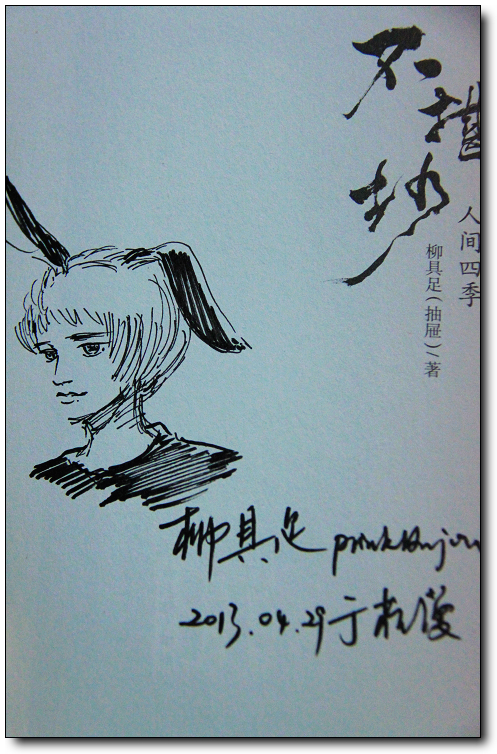 不堪劫
人间四季
柳具足（抽屉）/著
柳具足
2013.04.29于